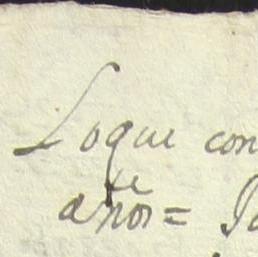 Loque con
te
años = Ja